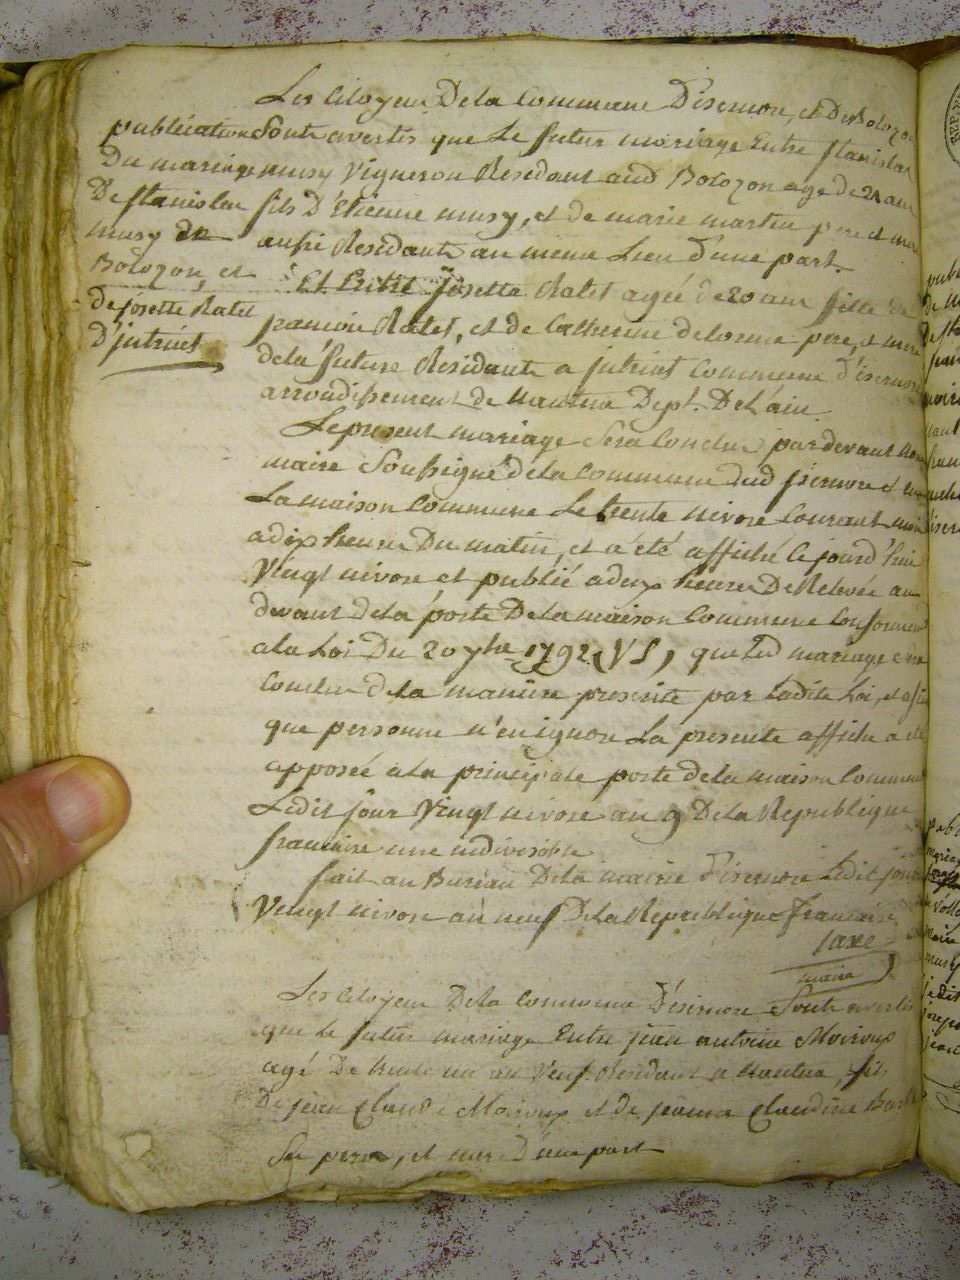 Les Citoyens De la Commune D'isernore, et de Bolozon
publication Sont avertis que Le futur mariage Entre stanislas
Du mariage musy Vigneron Residant aud Bolozon age de 21 ans
De stanislas fils D'Etienne musy, et de marie martin pere et mere
musy de aussi Residants au meme Lieu d'une part.
Bolozon, et Et Josette Ratet ageé de 20 ans fille de
de josette Ratet francois Ratet, et de Catherine delorme pere, et mere
D'jntriat dela future Residante a jntriat Commune d'isernore
arrondissement de Nantua Dept. De L'ain
Le present mariage Sera Conclu pardevant Nous
maire Soussigné de la Commune dud isernore et en
La maison Commune Le trente nivose Courant mois
a dix heures Du matin, et a été affiché Ce jourd'hui
Vingt nivose et publié a deux heures De Relevée au
devant dela porte De la maison Commune Conformement
a la Loi Du 20 7bre 1792 (VS), que Led mariage sera
Conclu de la maniere prescrite par Ladite Loi, et afin
que personne n'en ignore La presente affiche a été
apposée a la principale porte de la maison Commune
Ledit jour Vingt nivose an 9 De la Republique
francaise une indivisible
fait au Bureau De la mairie D'isernore Ledit jour
Vingt nivose an neuf De la Republique francaise
maire
Les Citoyens De la Commune D'isernore Sont avertis
que Le futur mariage Entre jean antoine Moiroux
agé De trente un an Veuf Residant a Nantua, fils
De jean Claude Moiroux et de jeanne Claudine
Ses pere, et mere D'une part